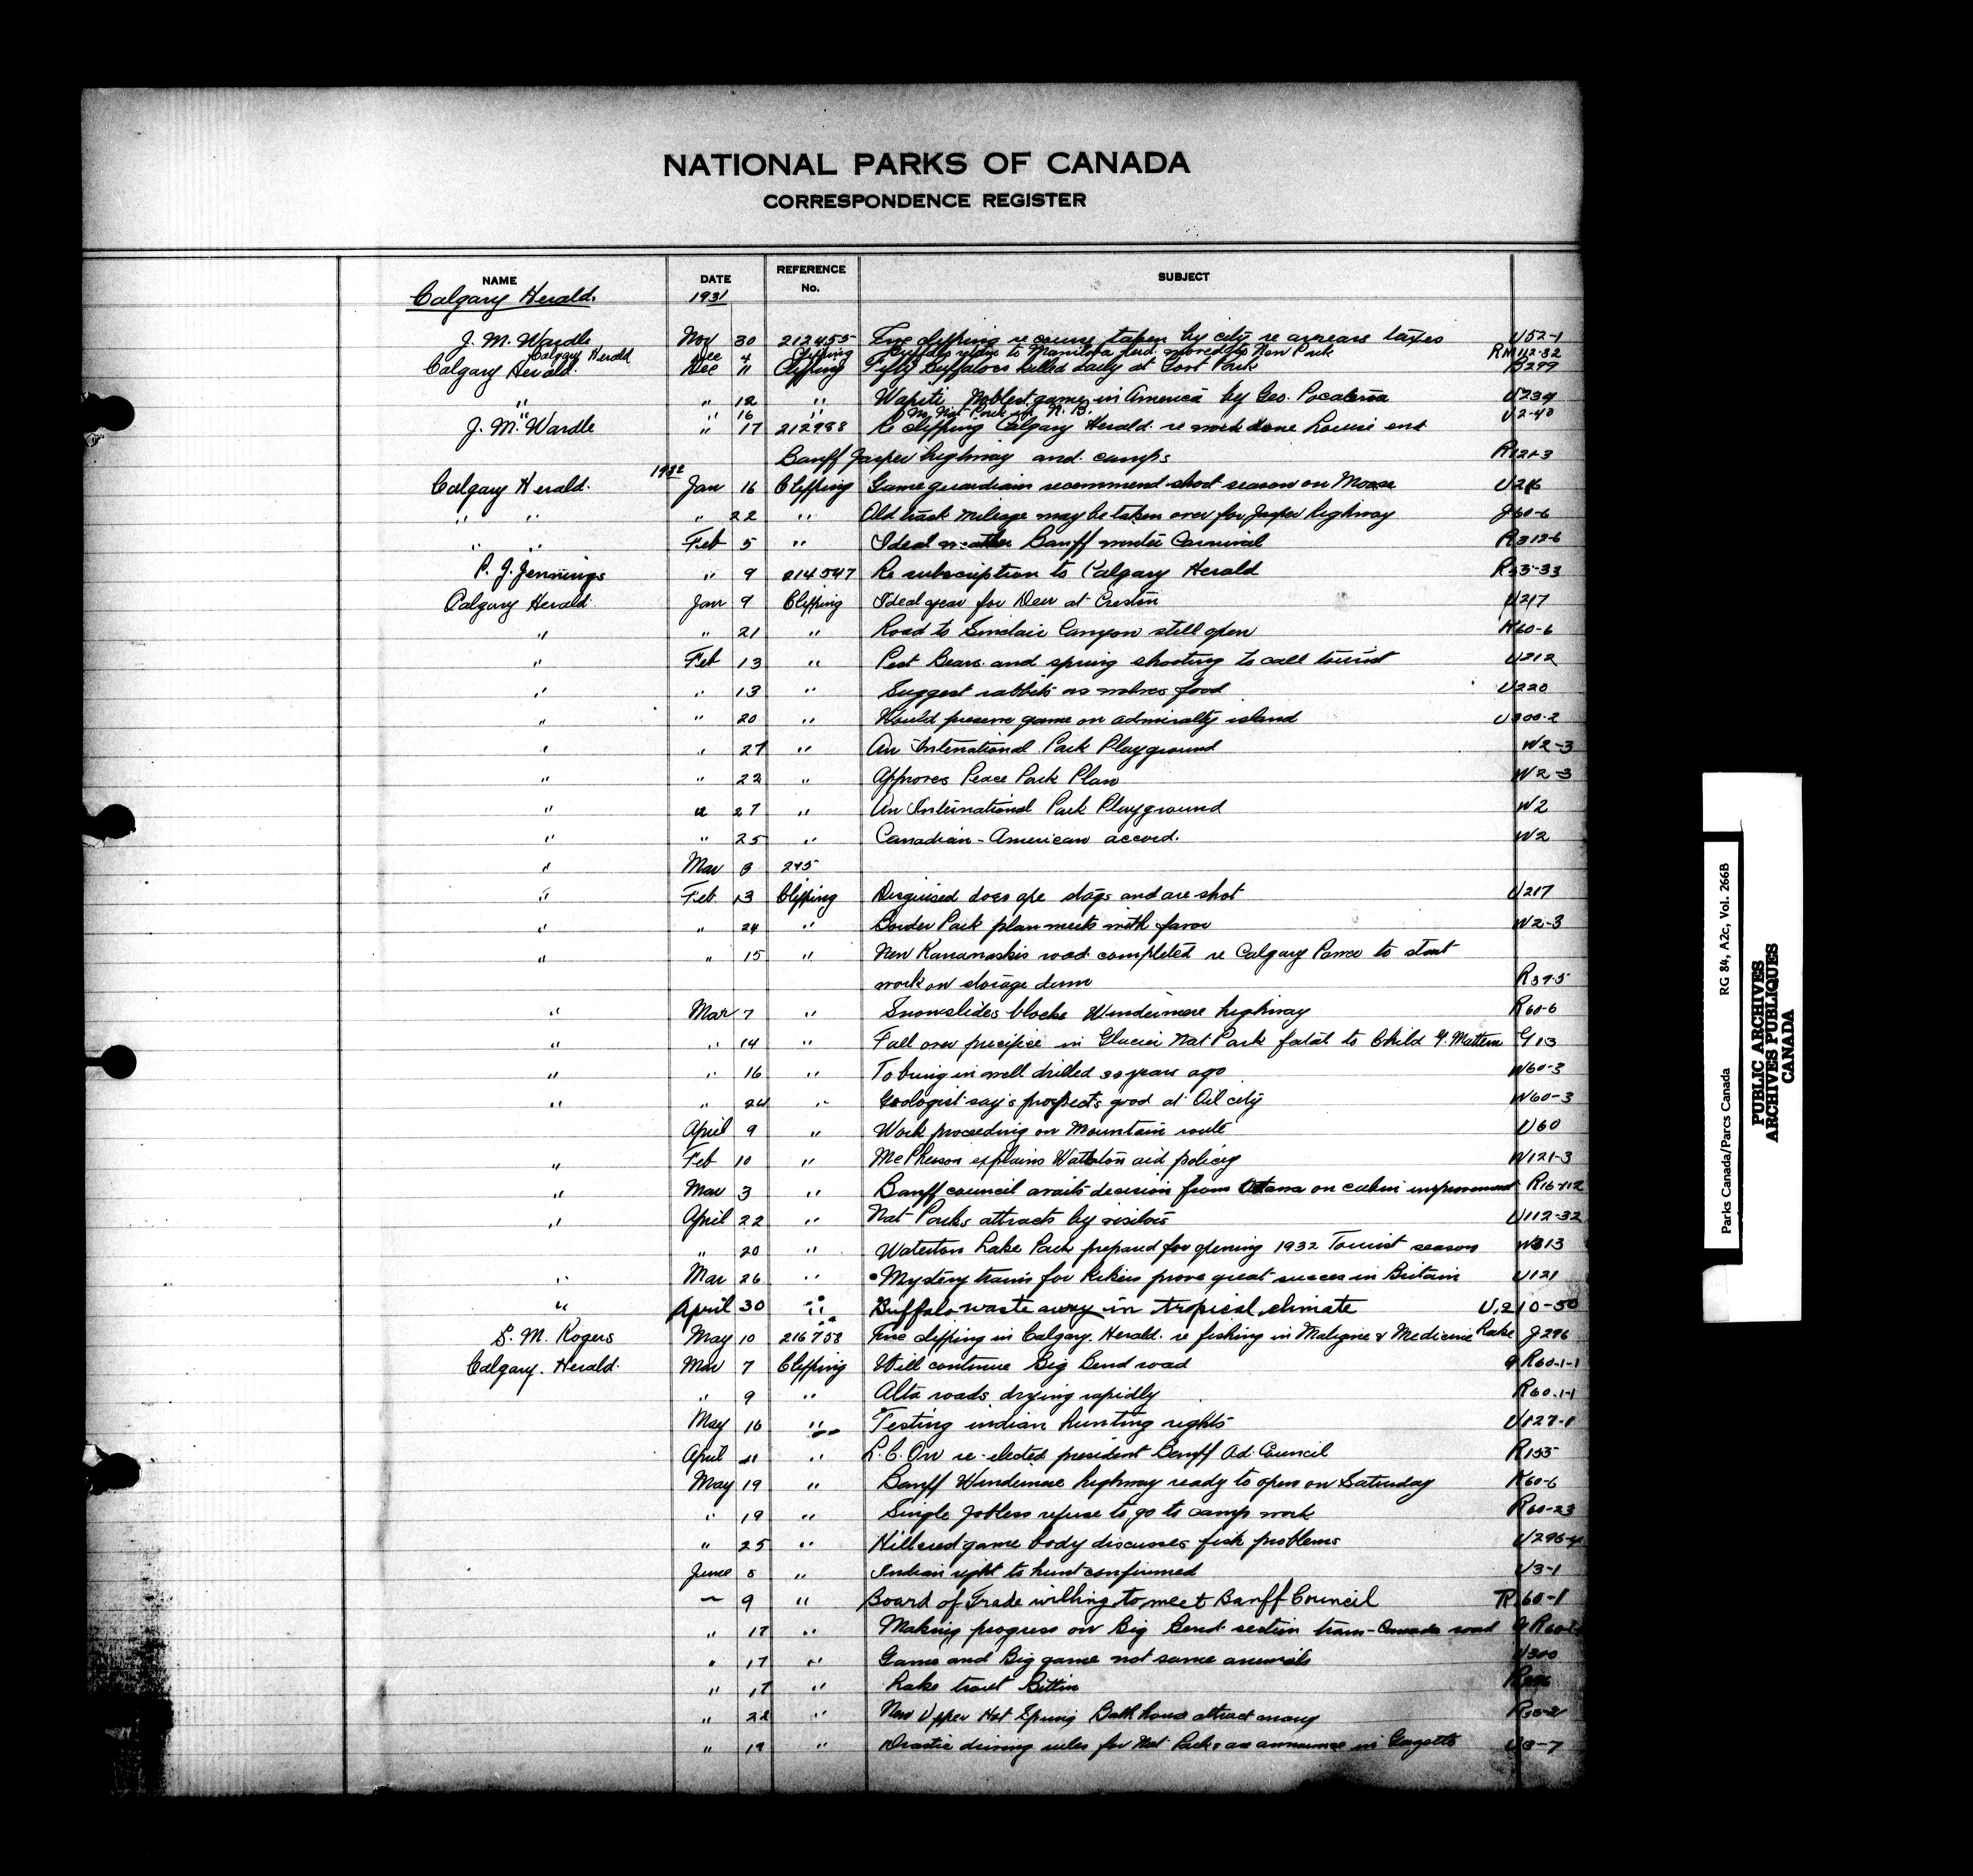 NATIONAL PARKS OF CANADA
CORRESPONDENCE REGISTER
NAME DATE REFERENCE No. SUBJECT
Calgary Herald. 1931
J. M. Wardle Nov 30 212455 clipping re course taken by city re arrears taxes U52-1
Calgary Herald Dec 4 Clipping to Manitoba moved to New Park 112-32
Calgary Herald. Dec 11 Clipping Fifty Buffaloes killed daily at Park B299
" " 12 " Wapiti Noblest game in America by Geo. Pocaterra U234
" 16 " No Nat Park in N. B. U2-40
J. M. Wardle " 17 212988 Re clipping Calgary Herald re work done Louise end
Banff Jasper highway and camps R121-3
1932
Calgary Herald. Jan 16 Clipping Game guardian recommend short season on Moose U216
" " " 22 " Old track mileage may be taken over for Jasper highway J60-6
" " Feb 5 " Ideal weather Banff winter Carnival R312-6
P. J. Jennings " 9 214547 Re subscription to Calgary Herald R35-33
Calgary Herald. Jan 9 Clipping Ideal year for Deer at Creston U217
" " 21 " Road to Sinclair Canyon still open K60-6
" Feb 13 " Pest Bears and spring shooting to call tourist U212
" " 13 " Suggest rabbits as wolves food U220
" " 20 " Would preserve game on admiralty island U300-2
" " 27 " An International Park Playground W2-3
" " 22 " Approves Peace Park Plan W2-3
" " 27 " An International Park Playground W2
" " 25 " Canadian-American accord. W2
" Mar 8 245
" Feb. 13 Clipping Disguised does ape stags and are shot U217
" " 24 " Border Park plan meets with favor W2-3
" " 15 " New Kananaskis road completed re Calgary Power to start
work on storage dam R39-5
" Mar 7 " Snowslides blocks Windermere highway R60-6
" " 14 " Fall over precipice in Glacier Nat Park fatal to Child G. Mattern G13
" " 16 " To bring in well drilled 30 years ago W60-3
" " 24 " Geologist say's prospects good at Oil city W60-3
April 9 " Work proceeding on Mountain route U60
" Feb 10 " McPherson explains Waterton aid policy W121-3
" Mar 3 " Banff council awaits decision from Ottawa on cabin improvement R16-112
" April 22 " Nat Parks attracts by visitors U112-32
" 20 " Waterton Lake Park prepared for opening 1932 Tourist season W313
" Mar 26 " Mystery trains for hikers prove great succes in Britain U121
" April 30 " Buffalo waste away in tropical climate U.210-50
S. M. Rogers May 10 216758 clipping in Calgary Herald. re fishing in Maligne & Medicine Lake J296
Calgary. Herald. Mar 7 Clipping Will continue Big Bend road G R60-1-1
" 9 " Alta roads drying rapidly R60-1-1
May 16 " Testing indian hunting rights U127-1
April 11 " L. C. Orr re-elected president Banff Ad. Council R155
May 19 " Banff Windermere highway ready to open on Saturday K60-6
" 19 " Single Jobless refuse to go to camp work R60-23
" 25 " Hillcrest game body discusses fish problems U296-
June 8 " Indian right to hunt confirmed U3-1
9 " Board of Trade willing to meet Banff Council R.60-1
" 17 " Making progress on Big Bend section trans-Canada road G R60-
" 17 " Game and Big game not same animals U300
" 17 " Lake trout
" 22 " New Upper Hot Spring Bath house attract many
" 19 " Drastic driving rules for Nat Parks are announce in Gazette U3-7
Parks Canada/Parcs Canada RG 84, A2c, Vol. 266B
PUBLIC ARCHIVES
ARCHIVES PUBLIQUES
CANADA